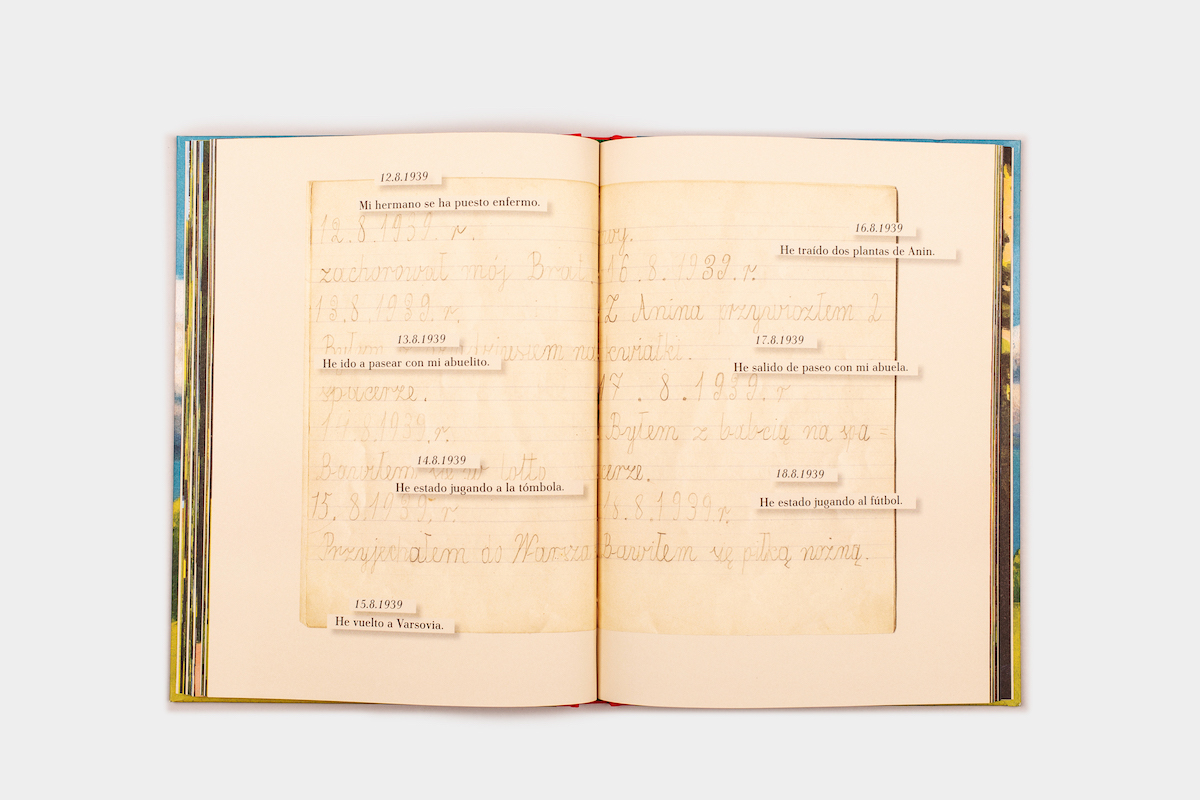 12.8.1939
Mi hermano se ha puesto enfermo.
12.8.1939. r.
zachorował mój Brat.
13.8.1939.r.
13.8.1939
Byłem na
He ido a pasear con mi abuelito.
spacerze.
14.8.1939.r.
14.8.1939
Bawiłem się w lotto
He estado jugando a la tómbola.
15.8.1939.r.
Przyjechałem do Warsza
15.8.1939
He vuelto a Varsovia.
wy.
16.8.1939
He traído dos plantas de Anin.
16.8.1939.r.
Z Anina przywiozłem 2
17.8.1939
kwiatki.
He salido de paseo con mi abuela.
17.8.1939.r
Byłem z babcią na spa=
cerze.
18.8.1939
He estado jugando al fútbol.
18.8.1939r.
Bawiłem się piłką nożną.